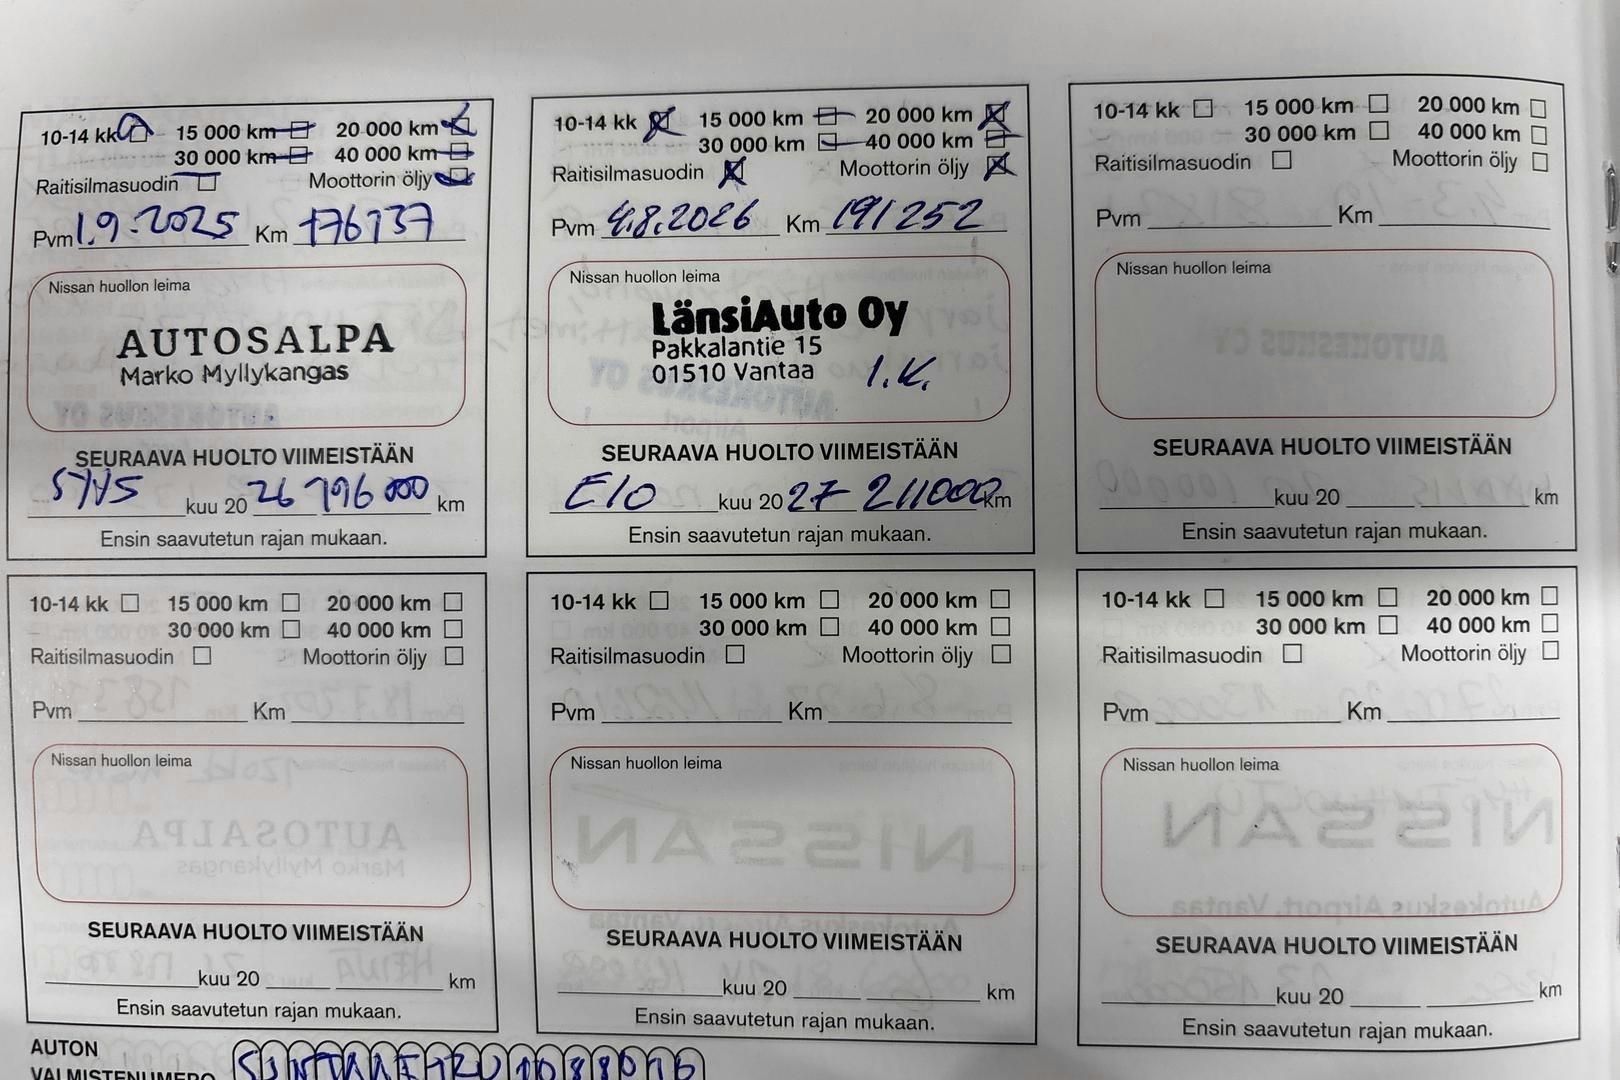 10-14 kk 15 000 km 20 000 km
30 000 km 40 000 km
Raitisilmasuodin Moottorin öljy
Pvm 1.9.2025 Km 176737
Nissan huollon leima
AUTOSALPA
Marko Myllykangas
SEURAAVA HUOLTO VIIMEISTÄÄN
SYYS kuu 20 26 196 000 km
Ensin saavutetun rajan mukaan.
10-14 kk 15 000 km 20 000 km
30 000 km 40 000 km
Raitisilmasuodin Moottorin öljy
Pvm 4.8.2026 Km 191252
Nissan huollon leima
LänsiAuto Oy
Pakkalantie 15
01510 Vantaa I.K.
SEURAAVA HUOLTO VIIMEISTÄÄN
ELO kuu 20 27 211000 km
Ensin saavutetun rajan mukaan.
10-14 kk 15 000 km 20 000 km
30 000 km 40 000 km
Raitisilmasuodin Moottorin öljy
Pvm Km
Nissan huollon leima
SEURAAVA HUOLTO VIIMEISTÄÄN
kuu 20 km
Ensin saavutetun rajan mukaan.
10-14 kk 15 000 km 20 000 km
30 000 km 40 000 km
Raitisilmasuodin Moottorin öljy
Pvm Km
Nissan huollon leima
SEURAAVA HUOLTO VIIMEISTÄÄN
kuu 20 km
Ensin saavutetun rajan mukaan.
10-14 kk 15 000 km 20 000 km
30 000 km 40 000 km
Raitisilmasuodin Moottorin öljy
Pvm Km
Nissan huollon leima
SEURAAVA HUOLTO VIIMEISTÄÄN
kuu 20 km
Ensin saavutetun rajan mukaan.
10-14 kk 15 000 km 20 000 km
30 000 km 40 000 km
Raitisilmasuodin Moottorin öljy
Pvm Km
Nissan huollon leima
SEURAAVA HUOLTO VIIMEISTÄÄN
kuu 20 km
Ensin saavutetun rajan mukaan.
AUTON
VALMISTENUMERO